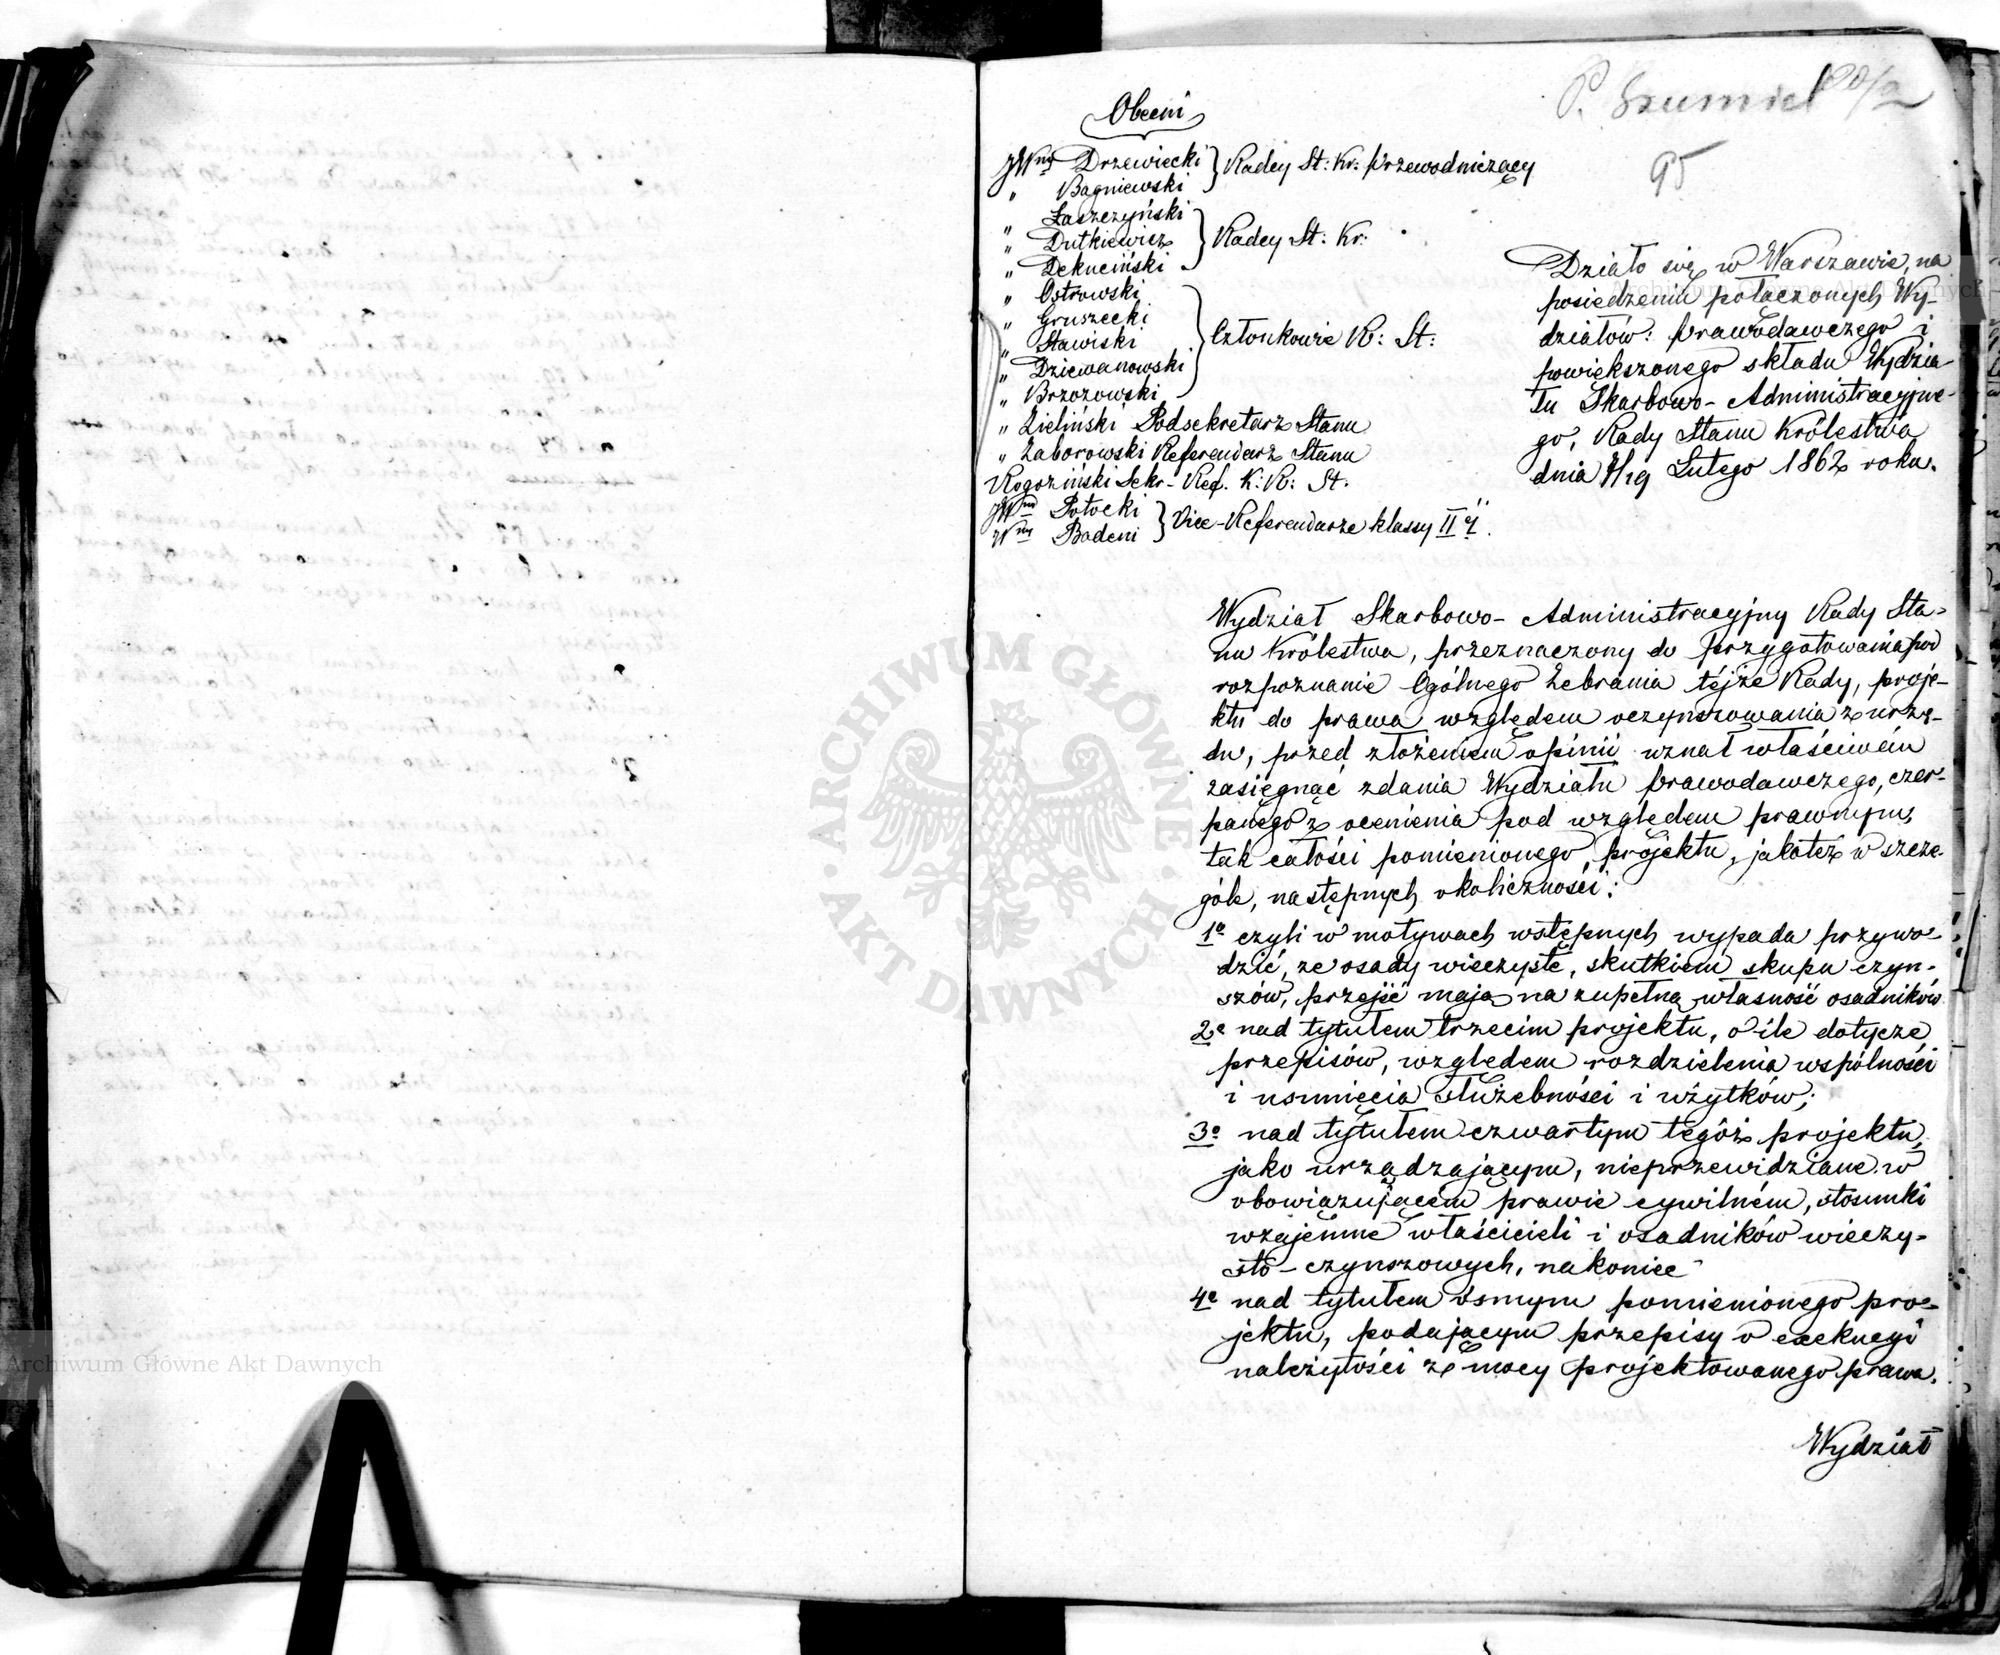 P. Szumiel 20/2
95
Obecni
JWny Drzewiecki } Radcy St: Kr: Przewodniczący
" Bagniewski
" Łaszczyński
" Dutkiewicz } Radcy St: Kr:
" Dekuciński
" Ostrowski
" Gruszecki
" Stawiski } Członkowie R: St:
" Dziewanowski
" Brzozowski
" Zieliński Podsekretarz Stanu
" Zaborowski Referendarz Stanu
Rogoziński Sekr- Ref. K: R: St.
JWny Potocki } Vice-Referendarze klassy II éj.
Wny Badeni
Działo się w Warszawie, na
posiedzeniu połączonych Wy-
działów: Prawodawczego i
powiększonego składu Wydzia-
łu Skarbowo-Administracyjne-
go, Rady Stanu Królestwa
dnia 7/19 Lutego 1862 roku.
Wydział Skarbowo-Administracyjny Rady Sta-
nu Królestwa, przeznaczony do przygotowania pod
rozpoznanie Ogólnego Zebrania téjże Rady, proje-
ktu do prawa względem oczynszowania z urzę-
du, przed złożeniem opinii uznał właściwém
zasięgnąć zdania Wydziału Prawodawczego, czer-
panego z ocenienia pod względem prawnym,
tak całości pomienionego projektu, jakotéż w szcze-
góle, następnych okoliczności:
1º czyli w motywach wstępnych wypada przywo-
dzić, że osady wieczyste, skutkiem skupu czyn-
szów, przejść mają na zupełną własność osadników
2º nad tytułem trzecim projektu, o ile dotyczę
przepisów, względem rozdzielenia wspólności
i usunięcia służebności i użytków;
3º nad tytułem czwartym tegóż projektu,
jako urządzającym, nieprzewidziane w
obowiązującém prawie cywilném, stosunki
wzajemne właścicieli i osadników wieczy-
sto-czynszowych, nakoniec
4º nad tytułem ósmym pomienionego pro-
jektu, podającym przepisy o exekucyi
należytości z mocy projektowanego prawa.
Wydział
ARCHIWUM GŁÓWNE AKT DAWNYCH
Archiwum Główne Akt Dawnych
Archiwum Główne Akt Dawnych